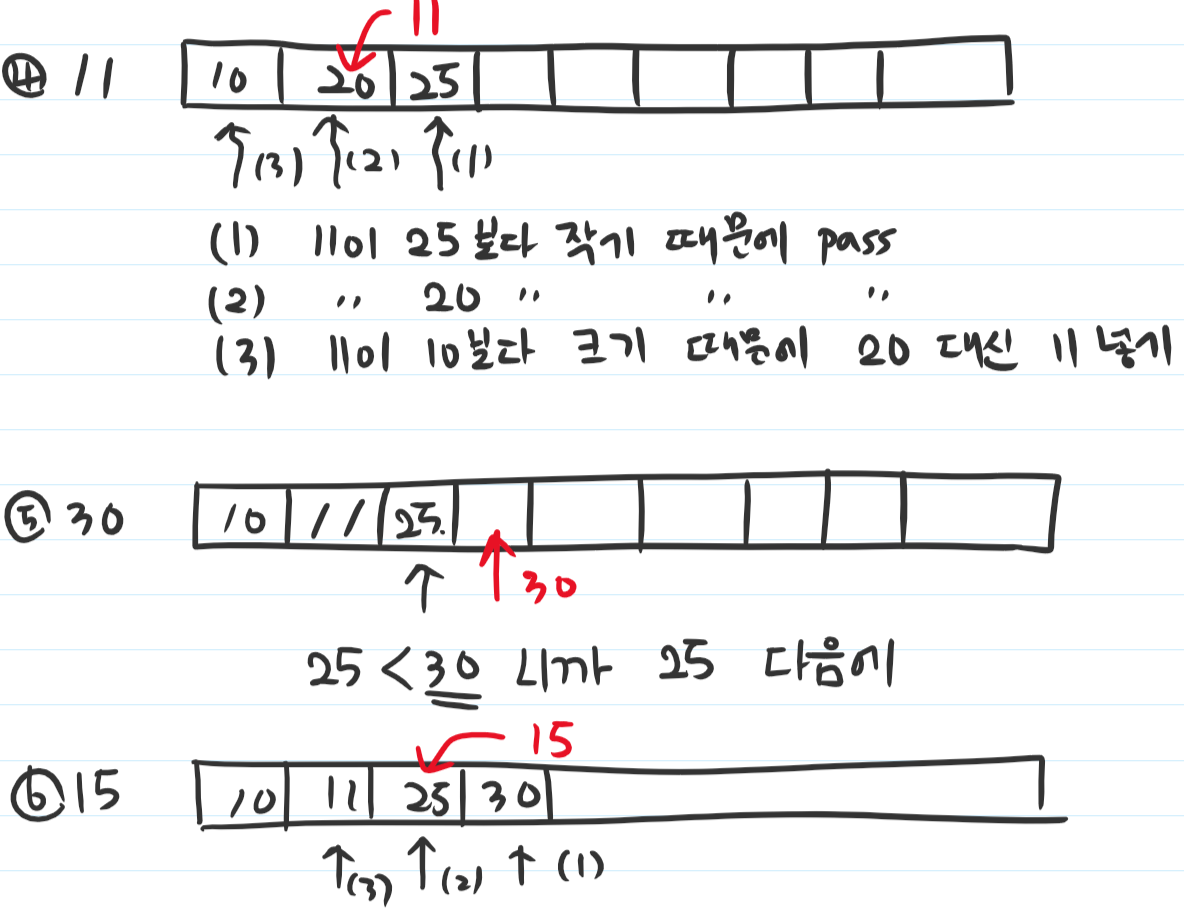 11
④ 11 10 20 25
(3) (2) (1)
(1) 11이 25보다 작기 때문에 pass
(2) 〃 20 〃 〃 〃
(3) 11이 10보다 크기 때문에 20 대신 11 넣기
⑤ 30 10 11 25
30
25 < 30 니까 25 다음에
15
⑥ 15 10 11 25 30
(3) (2) (1)